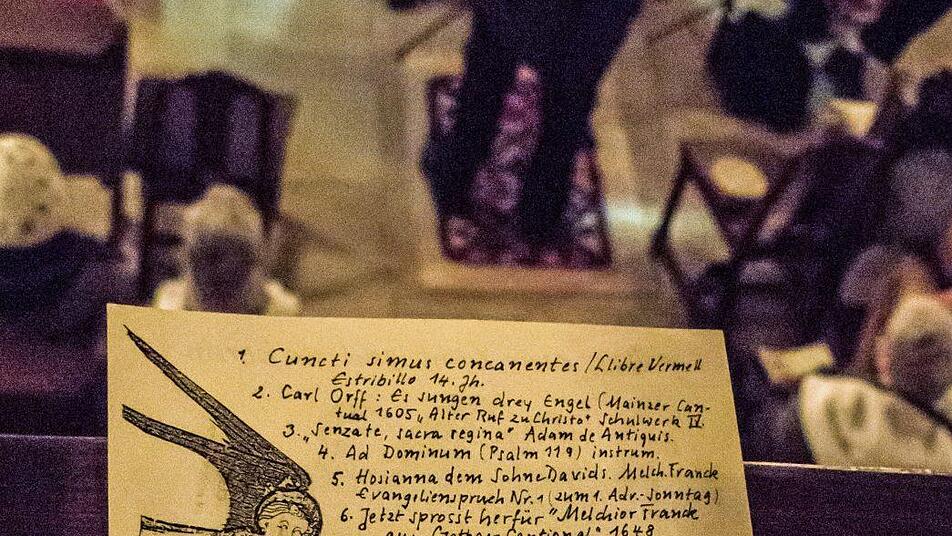 1. Cuncti simus concanentes / Llibre Vermell
Estribillo 14. Jh.
2. Carl Orff : Es sungen drey Engel (Mainzer Can-
tual 1605 „Alter Ruf zu Christo" Schulwerk IV.
3. „Senzate, sacra regina" Adam de Antiquis.
4. Ad Dominum (Psalm 119) instrum.
5. Hosianna dem Sohne Davids. Melch. Franck
Evangelienspruch Nr. 1 (zum 1. Adv.-Sonntag)
6. „Jetzt sprosst herfür" Melchior Franck
aus Gothaer Cantional" 1648